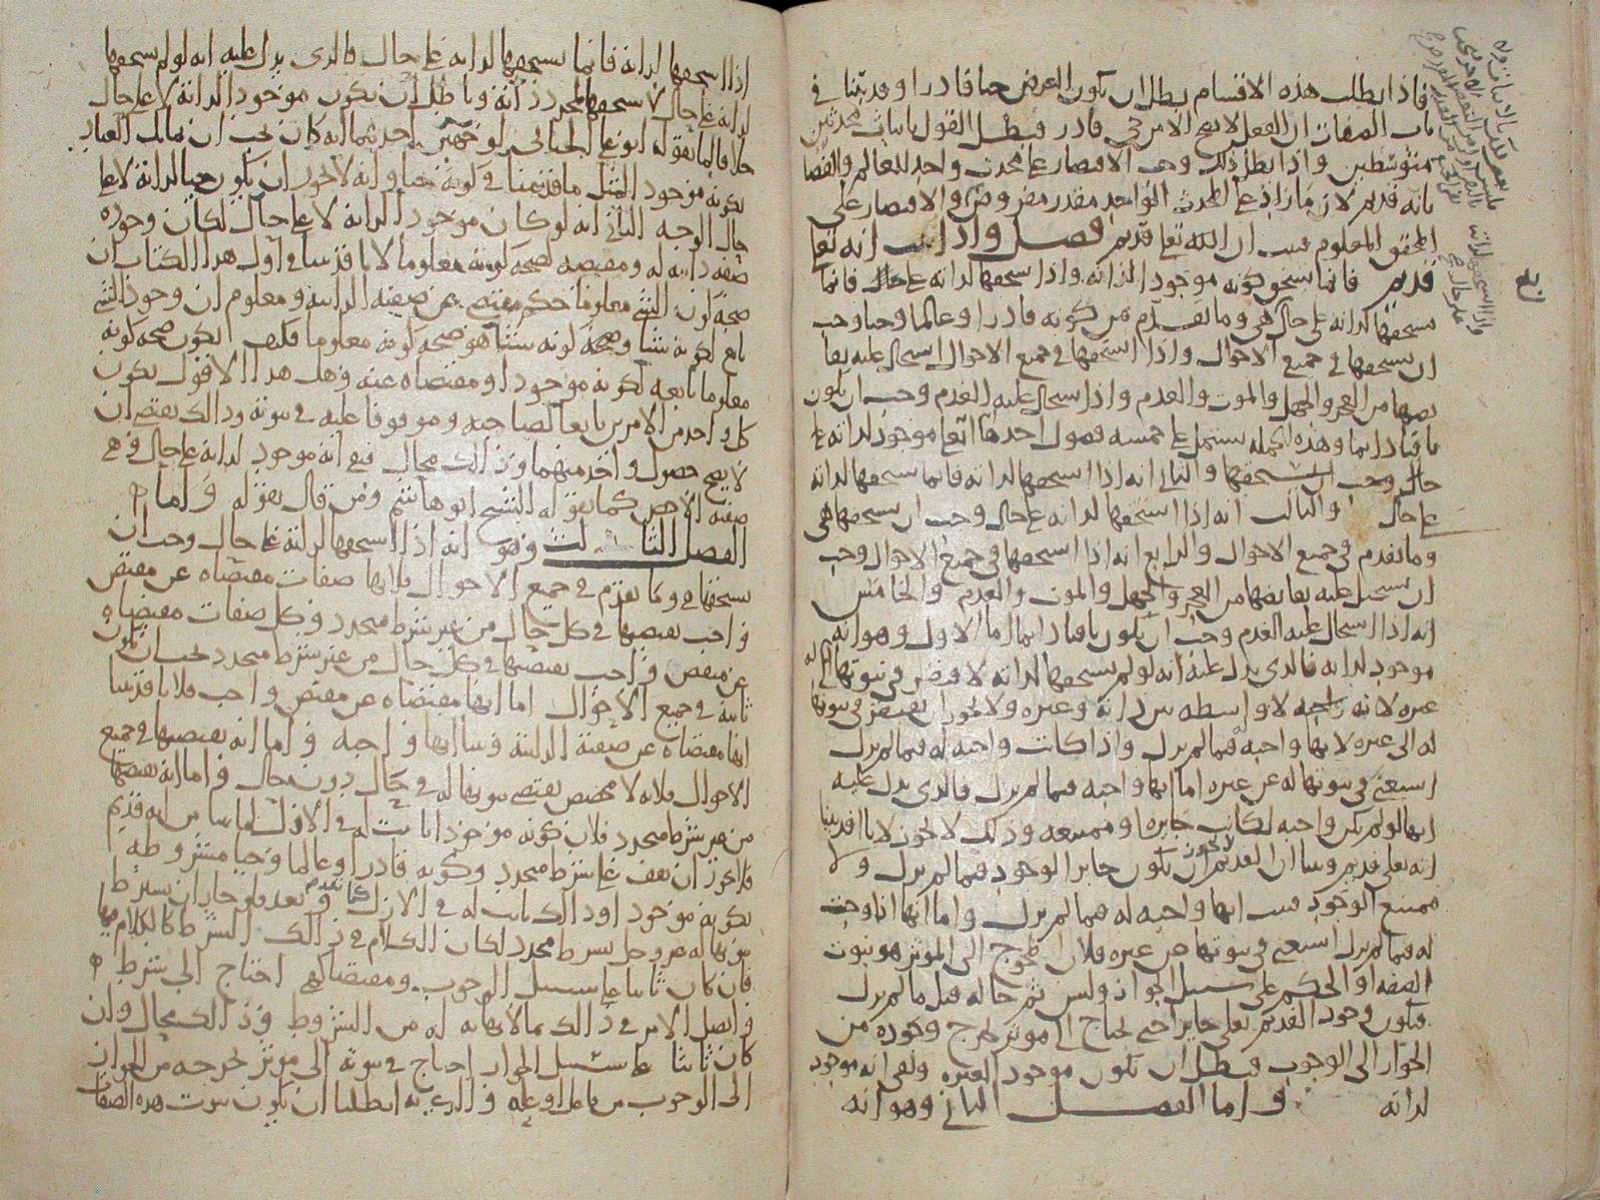 فاذا بطلت هذه الاقسام بطل ان يكون العرض حيا قادرا وقد بينا في
باب الصفات ان الفعل لا يصح الا من حي قادر فبطل القول باثبات محدثين
متوسطين واذا بطل ذلك وجب الاقتصار على محدث واحد للعالم والقضا
بانه قديم لان ما زاد على المحدث الواحد مقدر مفروض والاقتصار على
المحقق المعلوم فثبت ان الله تعالى قديم فصل واذا ثبت انه تعالى
قديم فانما يستحق كونه موجودا لذاته واذا استحقها لذاته على حال فانما
يستحقها لذاته على حال هي وما تقدم من كونه قادرا وعالما وحيا وجب
ان يستحقها في جميع الاحوال واذا استحقها في جميع الاحوال استحال عليه
من العجز والجهل والموت والعدم واذا استحال عليه العدم وجب ان يكون
باقيا دايما وهذه الجمله تشتمل على خمسه فصول احدها انه تعالى موجود لذاته على
حال وجب ان يستحقها والثاني انه اذا استحقها لذاته فانما يستحقها لذاته
على حال والثالث انه اذا استحقها لذاته على حال وجب ان يستحقها هي
وما تقدم في جميع الاحوال والرابع انه اذا استحقها في جميع الاحوال وجب
ان يستحيل عليه من العجز والجهل والموت والعدم والخامس
انه اذا استحال عليه العدم وجب ان يكون باقيا دايما اما الاول وهو انه
موجود لذاته فالذي يدل عليه انه لو لم يستحقها لذاته لافتقر في ثبوتها له الى
غيره لانه لا واسطه بين ذاته وغيره ولا يجوز ان يفتقر في ثبوتها
له الى غيره لانها واجبه فيما لم يزل واذا كانت واجبه له فيما لم يزل
استغنى في ثبوتها له عن غيره اما انها واجبه فيما لم يزل فالذي يدل عليه
انها لو لم تكن واجبه لكانت جايزه او ممتنعه وذلك لا يجوز لانا قد بينا
انه تعالى قديم وبينا ان القديم لا يجوز ان يكون جايز الوجود فيما لم يزل ولا
ممتنع الوجود فثبت انها واجبه له فيما لم يزل واما انها اذا وجبت
له فيما لم يزل استغنى في ثبوتها عن غيره فلان المحوج الى المؤثر هو ثبوت
الصفه او الحكم على سبيل الجواز وليس ثم حاله قبل ما لم يزل
فيكون وجود القديم تعالى جايزا حتى يحتاج الى مؤثر يخرج وجوده من
الجواز الى الوجوب فبطل ان يكون موجودا لغيره وبقي انه موجود
لذاته واما الفصل الثاني وهو انه
اذا استحقها لذاته فانما يستحقها لذاته على حال فالذي يدل عليه انه لو لم يستحقها
لذاته على حال لاستحقها لمجرد ذاته وباطل ان يكون موجودا لذاته لا على حال
خلافا لما يقوله ابو علي الجبائي لوجهين احدهما انه كان يجب ان يماثل العباد
بكونه موجودا لمثل ما قدمنا في كونه حيا وانه لا يجوز ان يكون حيا لذاته لا على
حال الوجه الثاني انه لو كان موجودا لذاته لا على حال لكان وجوده
صفه ذاتيه له ومقتضيه لصحه كونه معلوما لانا قد بينا في اول هذا الكتاب ان
صحه كون الشيء معلوما حكم مقتضى عن صفته الذاتيه ومعلوم ان وجود الشيء
تابع لكونه شيا وصحه كونه شيا هو صحه كونه معلوما فكيف تكون صحه كونه
معلوما تابعه لكونه موجودا ومقتضاه عنه وهل هذا الا قول بكون
كل واحد من الامرين تابعا لصاحبه وموقوفا عليه في ثبوته وذلك يقتضي ان
لا يصح حصول واحد منهما وذلك محال فبقي انه موجود لذاته على حال وهي
صفته الاخص كما يقوله الشيخ ابو هاشم ومن قال بقوله واما
الفصل الثالث وهو انه اذا استحقها لذاته على حال وجب ان
يستحقها هي وما تقدم في جميع الاحوال فلانها صفات مقتضاه عن مقتض
واجب يقتضيها في كل حال من غير شرط متجدد وكل صفات مقتضاه
عن مقتض واجب يقتضيها في كل حال من غير شرط متجدد يجب ان تكون
ثابته في جميع الاحوال اما انها مقتضاه عن مقتض واجب فلانا قد بينا
انها مقتضاه عن صفته الذاتيه وبينا انها واجبه واما انه يقتضيها في جميع
الاحوال فلانه لا مخصص يقتضي ثبوتها له في حال دون حال واما انه يقتضيها
من غير شرط متجدد فلان كونه موجودا ثابت له في الازل لما بينا من انه قديم
فلا يجوز ان يقف على شرط متجدد وكونه قادرا وعالما وحيا مشروطه
بكونه موجودا وذلك ثابت له في الازل كما تقدم وبعد فلو جاز ان يشترط
ثبوتها له عز وجل بشرط متجدد لكان الكلام في ذلك الشرط كالكلام فيها
فان كان ثابتا على سبيل الوجوب ومقتضاها احتاج الى شرط
واتصل الامر في ذلك بما لا نهايه له من الشروط وذلك محال وان
كان ثابتا على سبيل الجواز احتاج في ثبوته الى مؤثر يخرجه من الجواز
الى الوجوب من فاعل او عله والذي به ابطلنا ان يكون ثبوت هذه الصفات